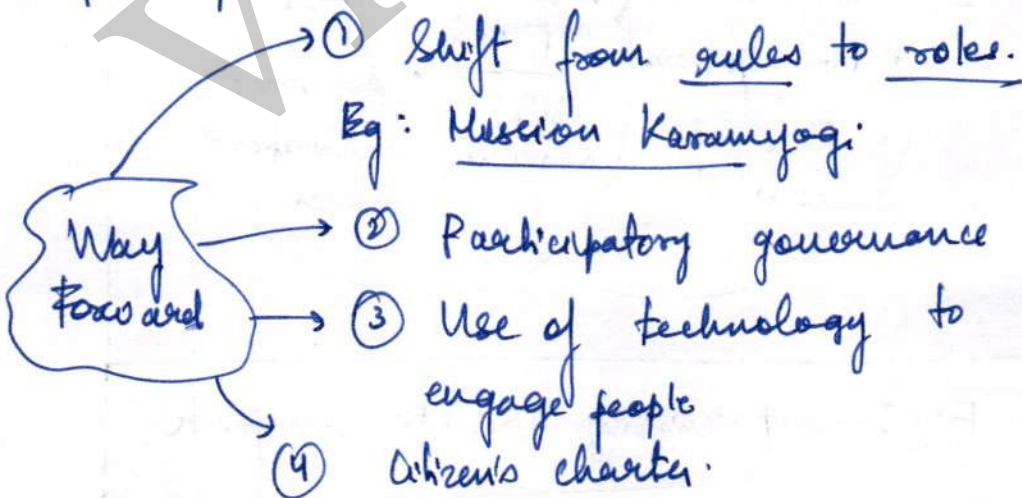 ① Shift from rules to roles.
Eg: Mission Karamyogi
Way
Forward
② Participatory governance
③ Use of technology to
engage people
④ Citizen's charter.